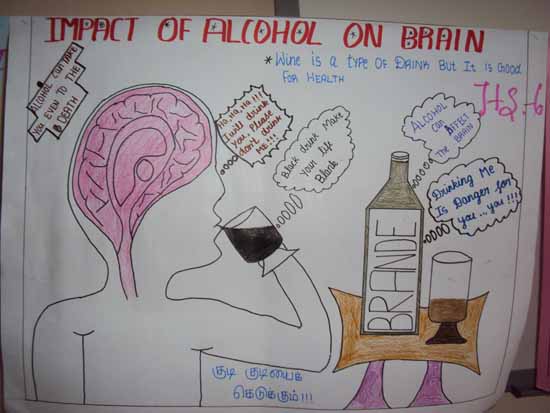 IMPACT OF ALCOHOL ON BRAIN
* Wine is a type of DRINK But It is Good
FOR HEALTH
ALCOHOL CAN TAKE
YOU EVEN TO THE
DEATH
HA, HA, HA !!!
I will drink
You, please
don't drink
ME !!!
Black drink Make
Your life
Blank
H.S-6
ALCOHOL
can AFFECT
THE BRAIN
Drinking Me
Is Danger for
you... you !!!
BRANDE
குடி குடியைக்
கெடுக்கும்!!!